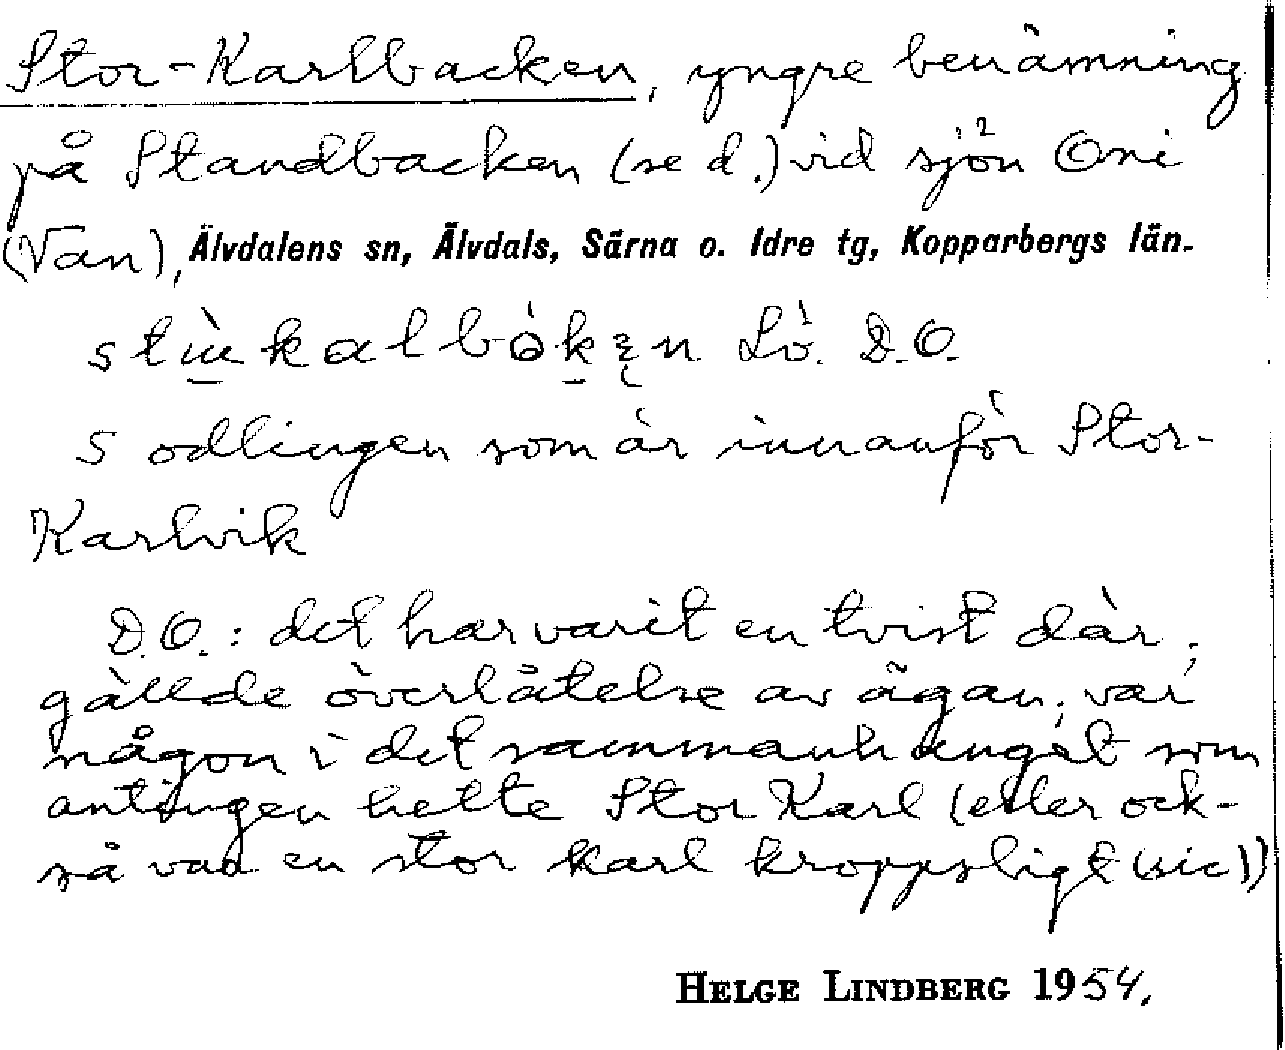 Stor-Karlbacken, yngre benämning
på Standbacken (se d.) vid sjön Oni
(Van), Älvdalens sn, Älvdals, Särna o. Idre tg, Kopparbergs län.
Lö. D.O.
S odlingen som är innanför Stor-
Karlvik
D.O.: det har varit en tvist där;
gällde överlåtelse av ägan; var
någon i det sammanhanget som
antingen hette Stor Karl (eller ock-
så var en stor karl kroppsligt (sic))
HELGE LINDBERG 1954.